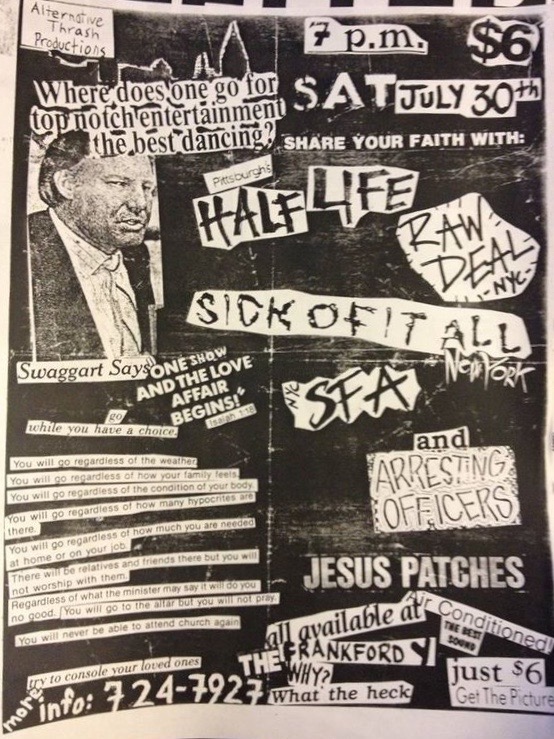 Alternative
Thrash
Productions
7 p.m.
$6
SAT JULY 30th
Where does one go for
top notch entertainment
the best dancing?
SHARE YOUR FAITH WITH:
Pittsburgh's
HALF LIFE
RAW
DEAL
-NYC-
SICK OF IT ALL
NEW YORK
NYC
SFA
and
ARRESTING
OFFICERS
Swaggart Says
"ONE SHOW
AND THE LOVE
AFFAIR
BEGINS!"
Isaiah 1:18
go
while you have a choice.
You will go regardless of the weather.
You will go regardless of how your family feels.
You will go regardless of the condition of your body.
You will go regardless of how many hypocrites are
there.
You will go regardless of how much you are needed
at home or on your job.
There will be relatives and friends there but you will
not worship with them.
Regardless of what the minister may say it will do you
no good. You will go to the altar but you will not pray.
You will never be able to attend church again
try to console your loved ones
more
info: 724-7927
JESUS PATCHES
all available at
THE FRANKFORD Y
WHY?
What the heck
Air Conditioned
THE BEST
SOUND
just $6
Get The Picture